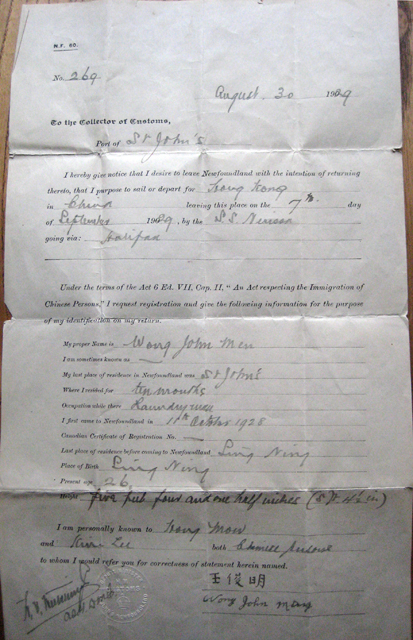 N.F. 60.
No. 269
August 30 1929
To the Collector of Customs,
Port of St John's
I hereby give notice that I desire to leave Newfoundland with the intention of returning
thereto, that I purpose to sail or depart for Hong Kong
in China leaving this place on the 7th day
of September 1929, by the S.S. Nerissa
going via: Halifax
Under the terms of the Act 6 Ed. VII, Cap. II, "An Act respecting the Immigration of
Chinese Persons," I request registration and give the following information for the purpose
of my identification on my return.
My proper Name is Wong John Men
I am sometimes known as —
My last place of residence in Newfoundland was St John's
Where I resided for ten months
Occupation while there Laundryman
I first came to Newfoundland in 11th October 1928
Canadian Certificate of Registration No. —
Last place of residence before coming to Newfoundland Ling Ning
Place of Birth Ling Ning
Present age 26
Height five feet four and one half inches (5 ft 4½ in)
I am personally known to Hong
and Kim Lee both
to whom I would refer you for correctness of statement herein named.
王俊明
Wong John